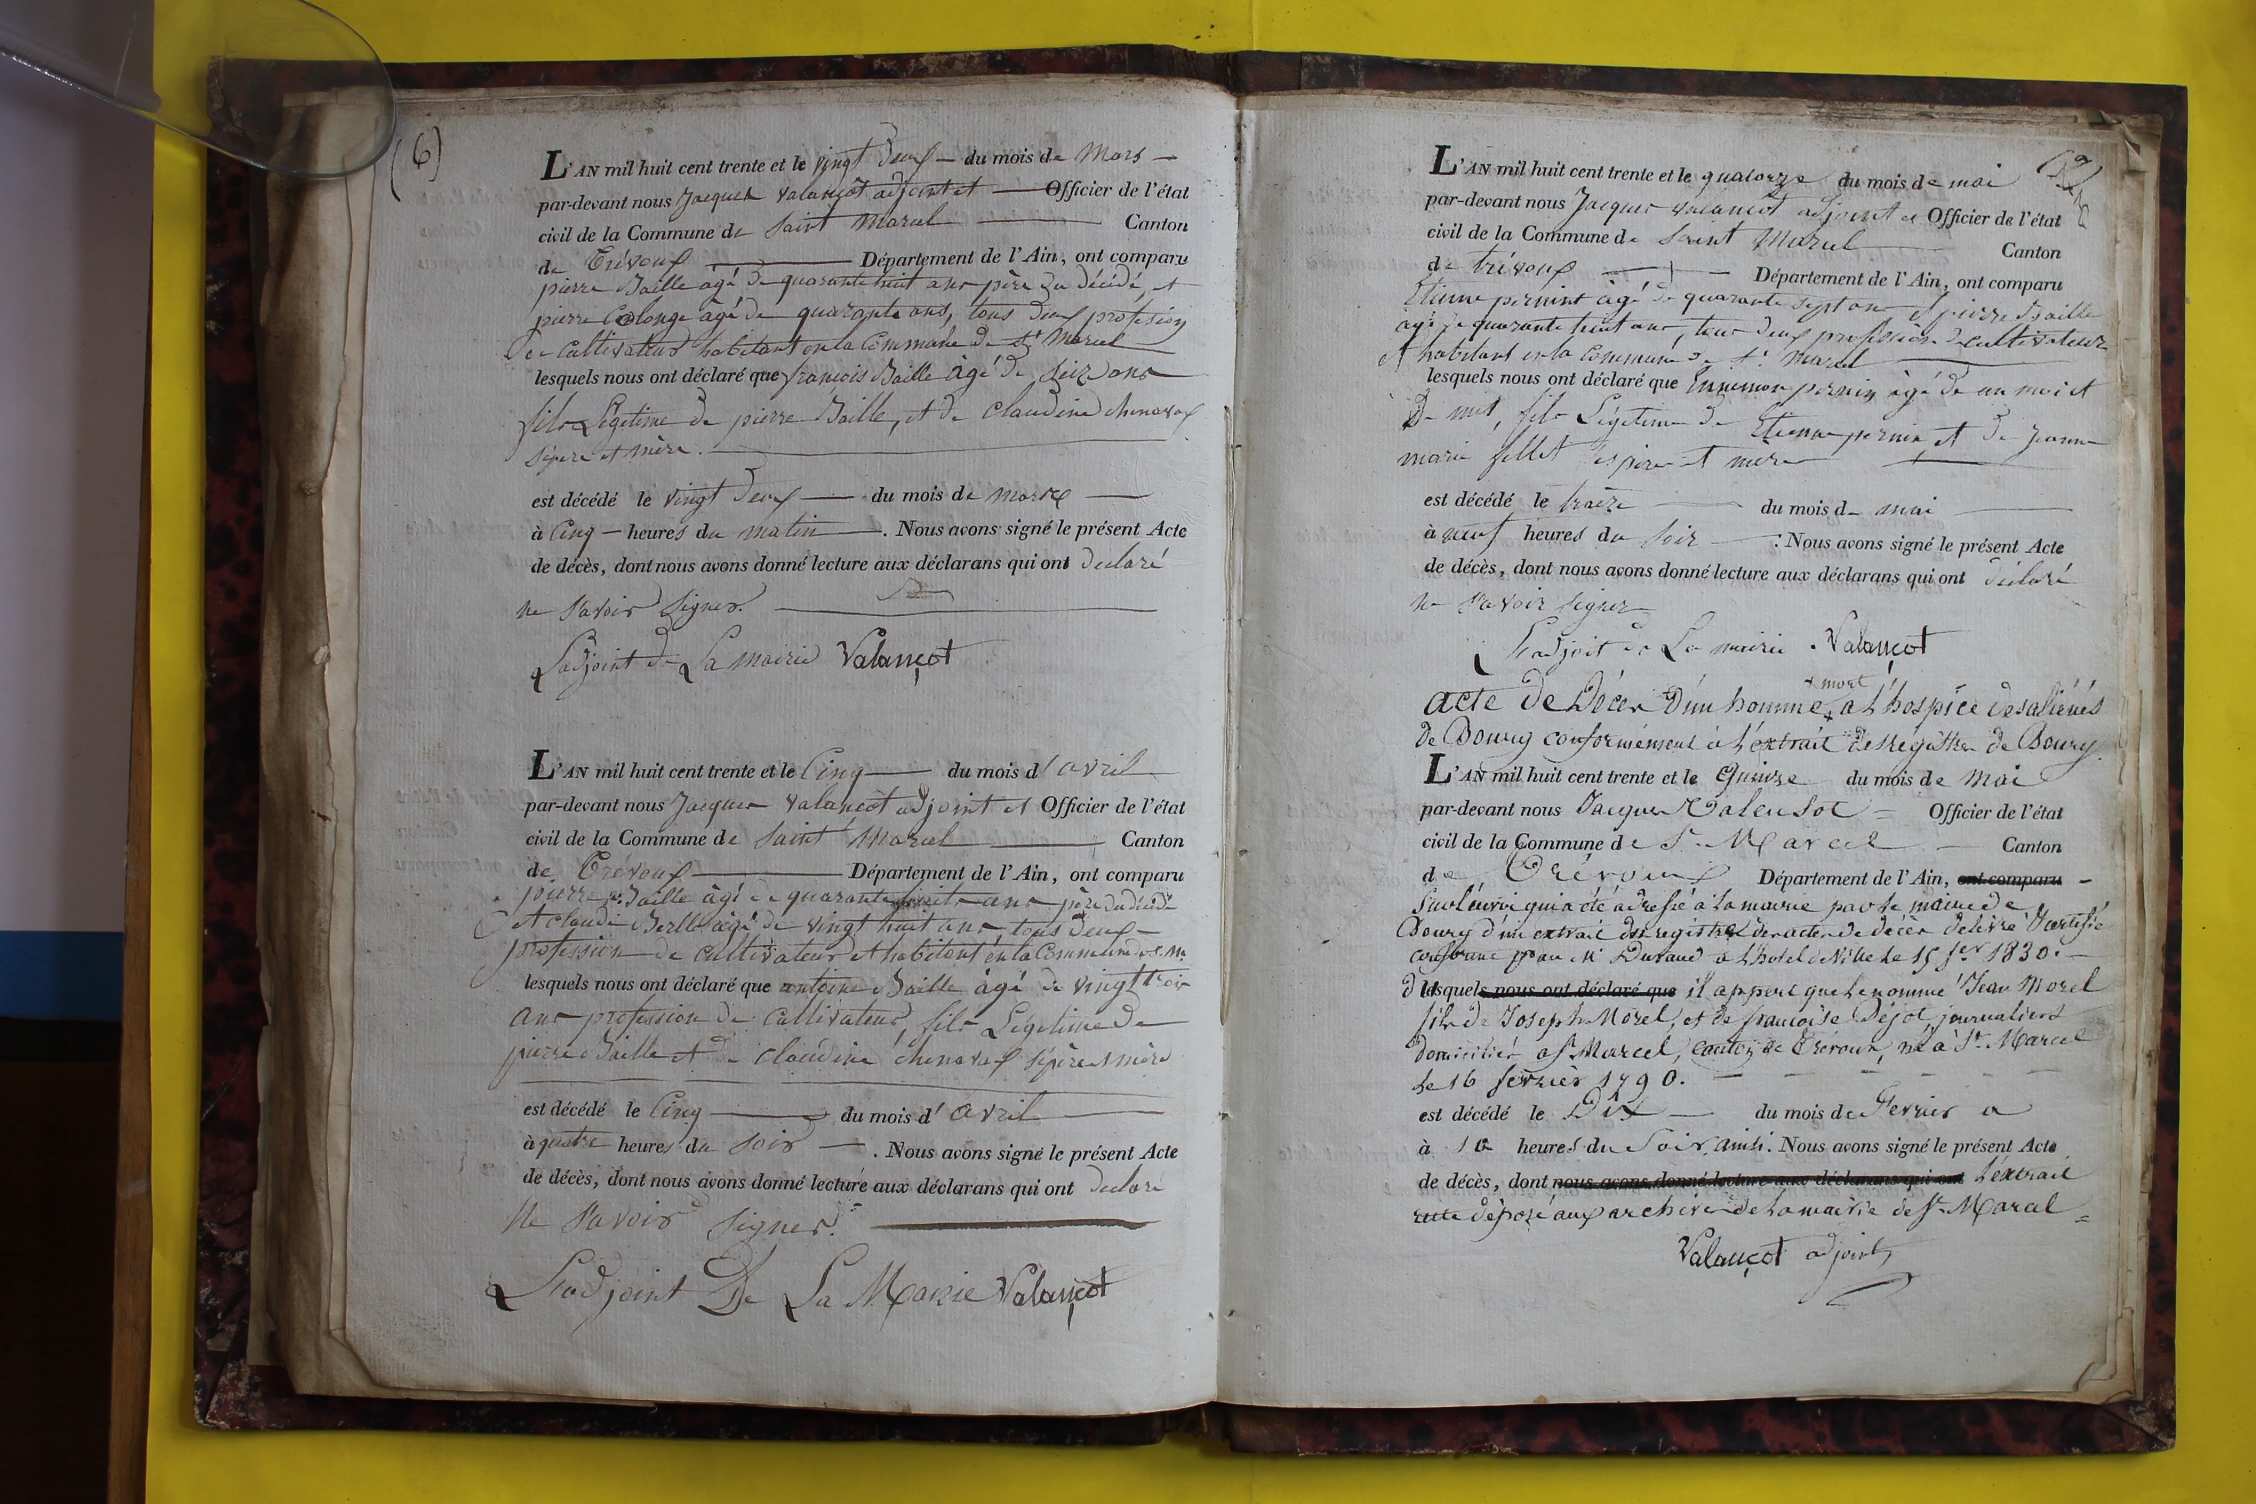 (6)
L'AN mil huit cent trente et le vingt deux du mois de Mars
par-devant nous Jacques Valançot adjoint et Officier de l'état
civil de la Commune de Saint Marcel Canton
de Trévoux Département de l'Ain, ont comparu
pierre Baille âgé de quarante huit ans père du décédé, et
pierre Colonge âgé de quarante ans, tous deux profession
de Cultivateur habitant en la Commune de St Marcel
lesquels nous ont déclaré que françois Baille âgé de seize ans
fils Légitime de pierre Baille, et de claudine chenavax
sépère et mère.
est décédé le vingt deux du mois de mars
à Cinq heures du matin. Nous avons signé le présent Acte
de décès, dont nous avons donné lecture aux déclarans qui ont déclaré
ne savoir signer.
L'adjoint de La mairie Valançot
L'AN mil huit cent trente et le Cinq du mois d'avril
par-devant nous Jacques Valançot adjoint et Officier de l'état
civil de la Commune de Saint Marcel Canton
de Trévoux Département de l'Ain, ont comparu
pierre Baille âgé de quarante huit ans père du décédé
et claude âgé de vingt huit ans tous deux
profession de cultivateur et habitant en la Commune de St Ml
lesquels nous ont déclaré que antoine Baille âgé de vingt trois
ans profession de Cultivateur, fils Légitime de
pierre Baille et de claudine chenavax sépère et mère
est décédé le Cinq du mois d'avril
à quatre heures du soir. Nous avons signé le présent Acte
de décès, dont nous avons donné lecture aux déclarans qui ont déclaré
ne savoir signer.
L'adjoint De La Mairie Valançot
L'AN mil huit cent trente et le quatorze du mois de mai
par-devant nous Jacques Valançot adjoint et Officier de l'état
civil de la Commune de Saint Marcel Canton
de trévoux Département de l'Ain, ont comparu
Etienne pernint âgé de quarante sept ans et pierre Baille
âgé de quarante huit ans, tous deux profession de cultivateur
et habitant en la Commune de St Marcel
lesquels nous ont déclaré que Ennemon pernin âgé de un moi et
De mit, fils Légitime de Etienne pernin, et de jeanne
marie fillet ses père et mère
est décédé le traize du mois de mai
à neuf heures du soir : Nous avons signé le présent Acte
de décès, dont nous avons donné lecture aux déclarans qui ont déclaré
ne savoir signer
L'adjoit de La mairie. Valançot
+ mort
acte de Décès d'un homme + a L'hospice des aliénés
de Bourg conformément à L'extrait des Régistres de Bourg.
L'AN mil huit cent trente et le Quinze du mois de Mai
par-devant nous Jacques Valensot = Officier de l'état
civil de la Commune de St. Marcel Canton
de Trévoux Département de l'Ain, ont comparu
Sur L'envoi qui a été adressé à la mairie par le maire de
Bourg d'un extrait des registres des actes de décès délivré Certifié
conforme par Mr Durand a L'hotel de Ville le 15 fer 1830.
d lesquels nous ont déclaré que il appert que le nommé Jean Morel
fils de Joseph Morel, et de françoise Déjot journaliers
Domiciliés a St Marcel, canton de Trévoux, né à St. Marcel
Le 16 fevrier 1790.
est décédé le Dix du mois de Fevrier a
à 10 heures du Soir, ainsi. Nous avons signé le présent Acte
de décès, dont nous avons donné lecture aux déclarans qui ont L'extrait
reste déposé aux archives de La mairie de St. Marcel =
Valançot adjoint